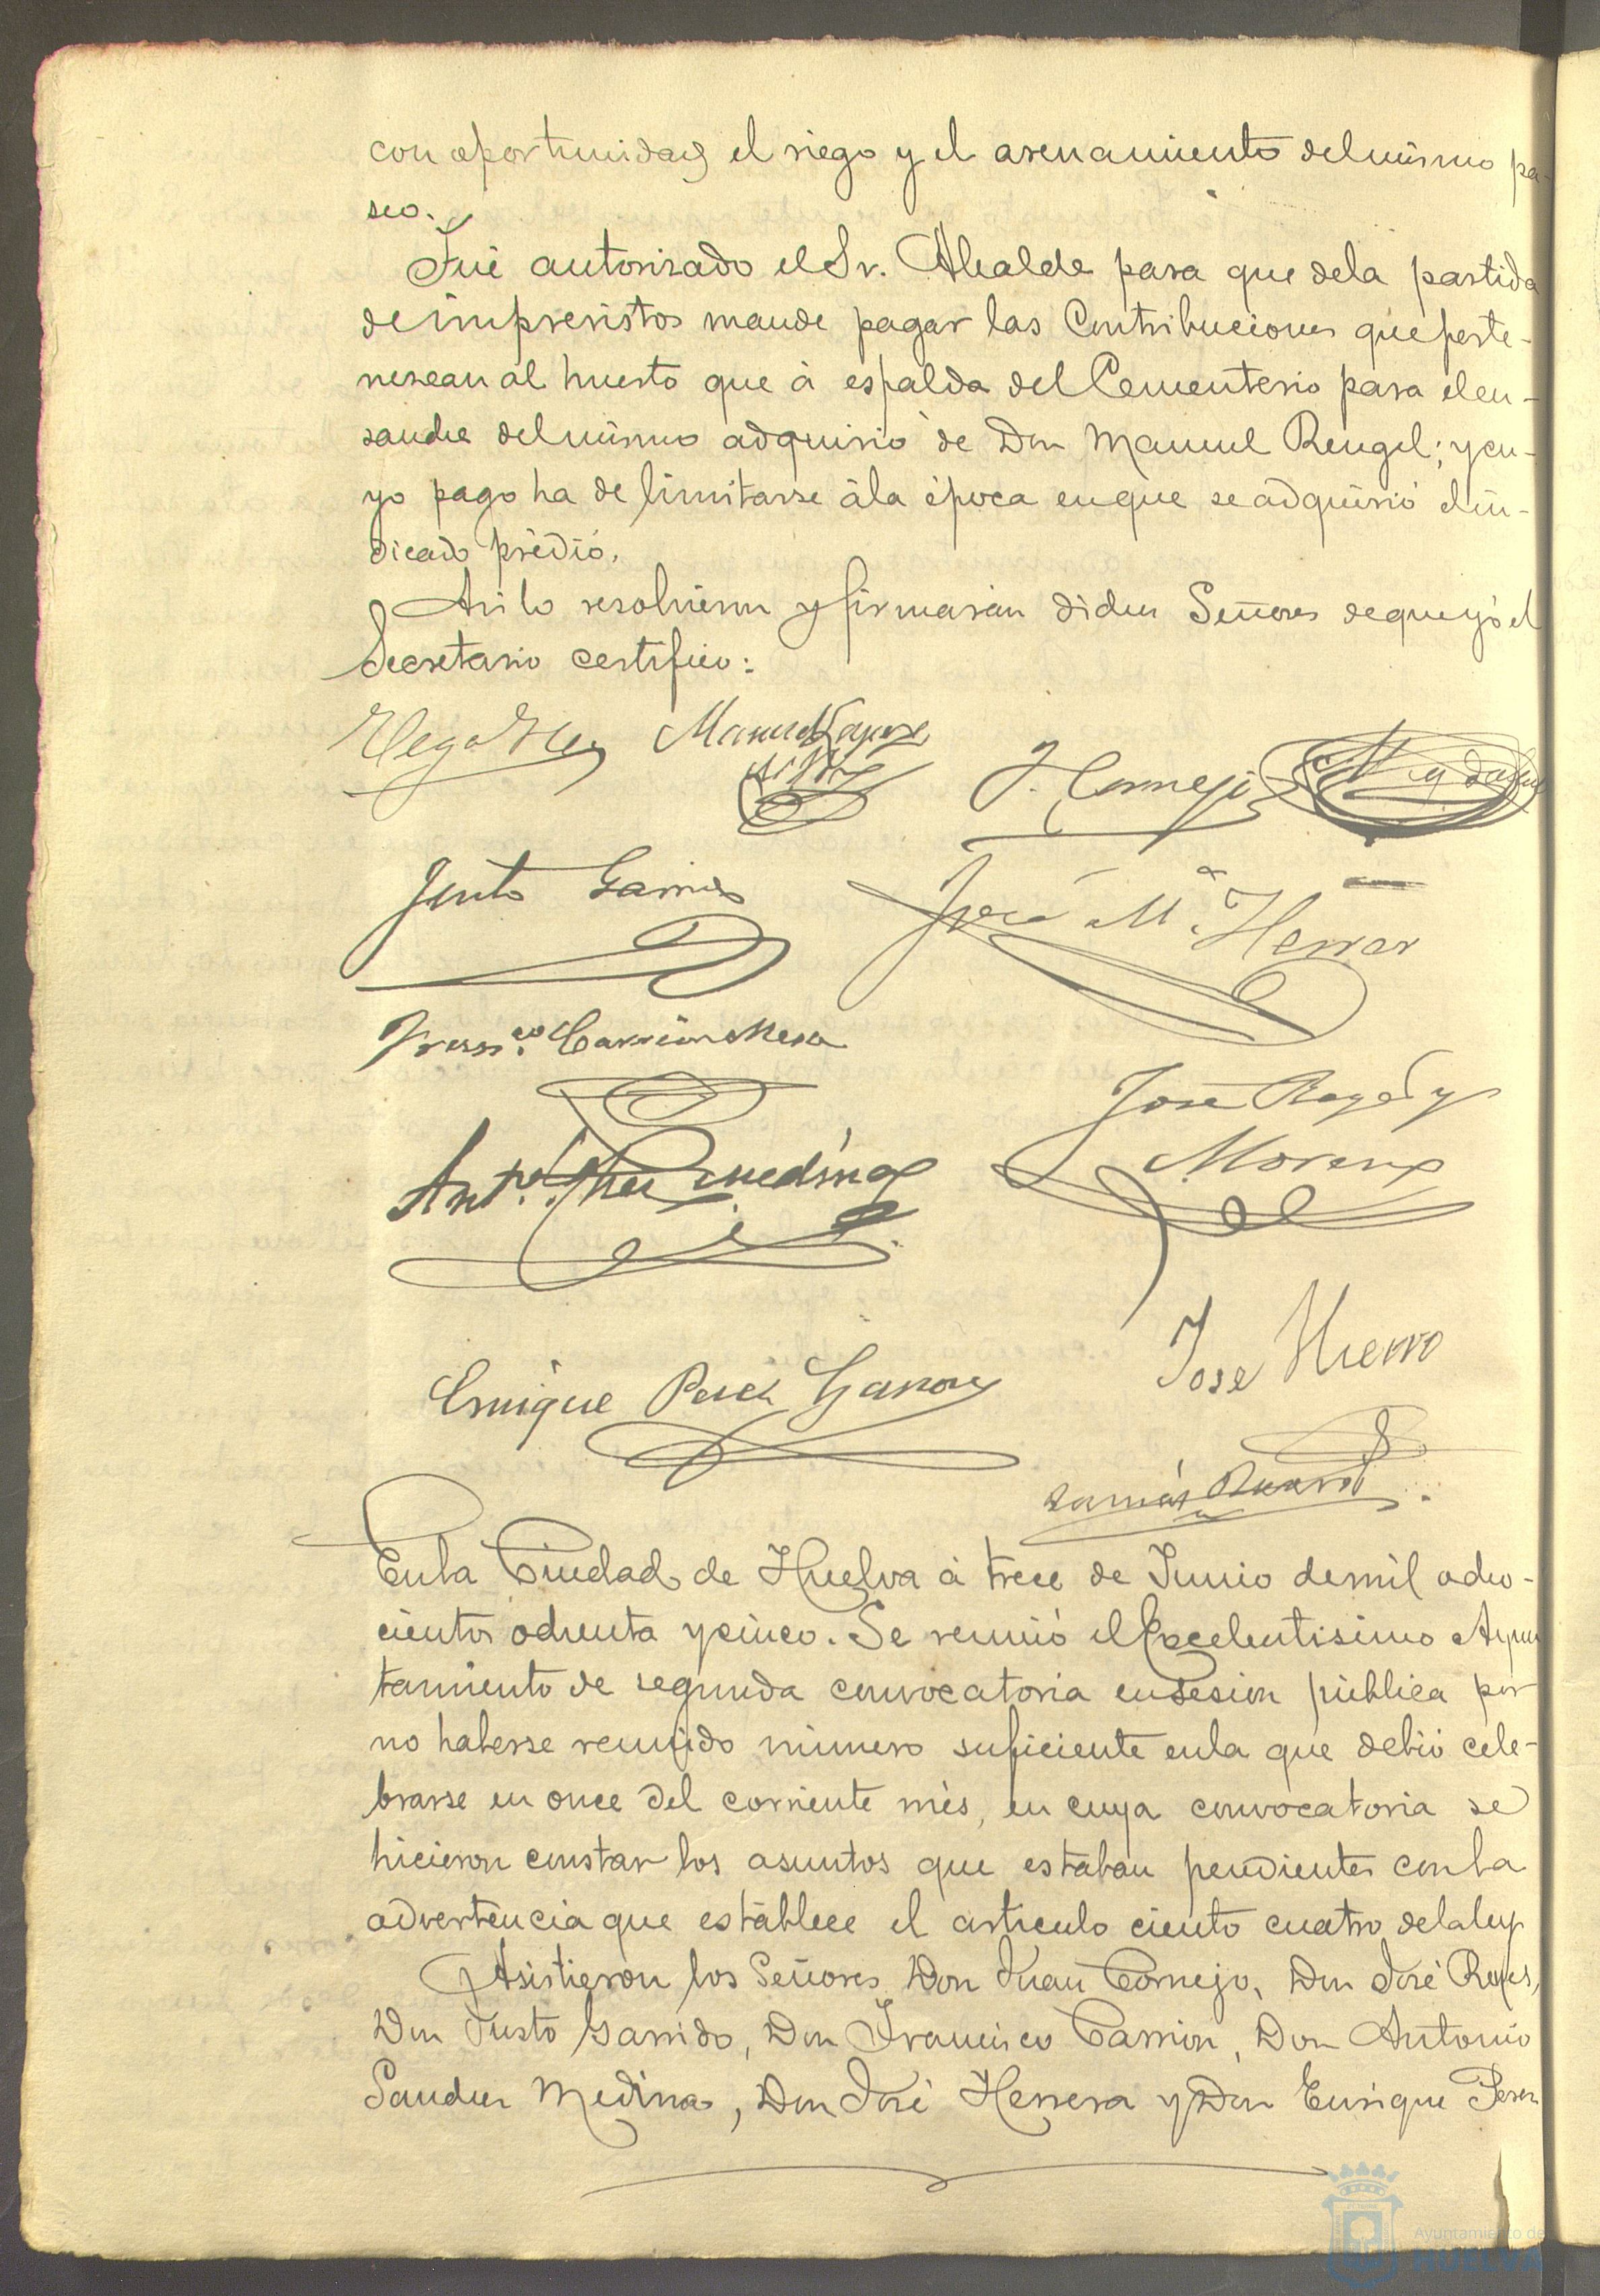 con oportunidad el riego y el arenamiento del mismo pa-
seo.
Fué autorizado el Sr. Alcalde para que de la partida
de imprevistos mande pagar las Contribuciones que perte-
nezcan al huerto que á espalda del Cementerio para el en-
sanche del mismo adquirió de Don Manuel Rengel; y cu-
yo pago ha de limitarse á la época en que se adquirió el in-
dicado prédio.
Asi lo resolvieron y firmarán dichos Señores de que yo el
Secretario certifico:
J. Cornejo
Justo Garrido
José Mª Herrera
Franco. Carrión Mesa
José Reyes y
Moreno
Anto. Sanchez Medina
José Hierro
Enrique Perez
En la Ciudad de Huelva á trece de Junio de mil ocho-
cientos ochenta y cinco. Se reunió el Excelentisimo Ayun
tamiento de segunda convocatoria en sesion pública por
no haberse reunido número suficiente en la que debió cele-
brarse en once del corriente més, en cuya convocatoria se
hicieron constar los asuntos que estaban pendientes con la
advertencia que establece el articulo ciento cuatro de la ley
Asistieron los Señores Don Juan Cornejo, Don José Reyes,
Don Justo Garrido, Don Francisco Carrion, Don Antonio
Sanchez Medina, Don José Herrera y Don Enrique Perez
Ayuntamiento de
HUELVA